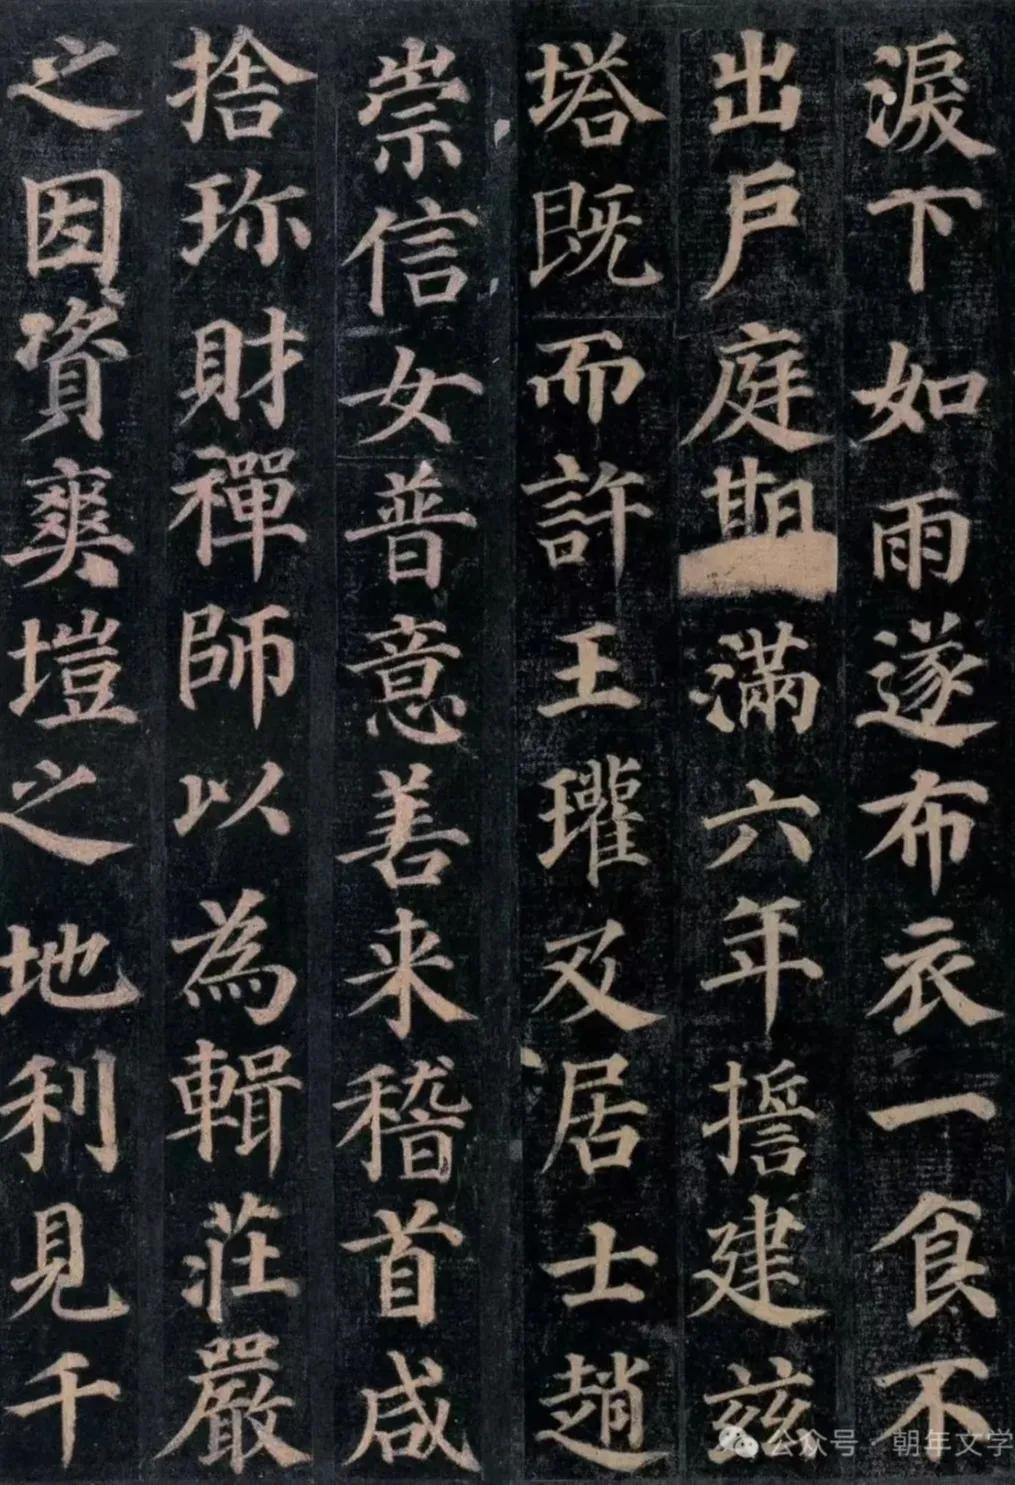 淚下如雨遂布衣一食不
出戶庭期滿六年誓建茲
塔既而許王瓘及居士趙
崇信女普意善来稽首咸
捨珎財禪師以為輯莊嚴
之因資爽塏之地利見千
公众号·朝年文学